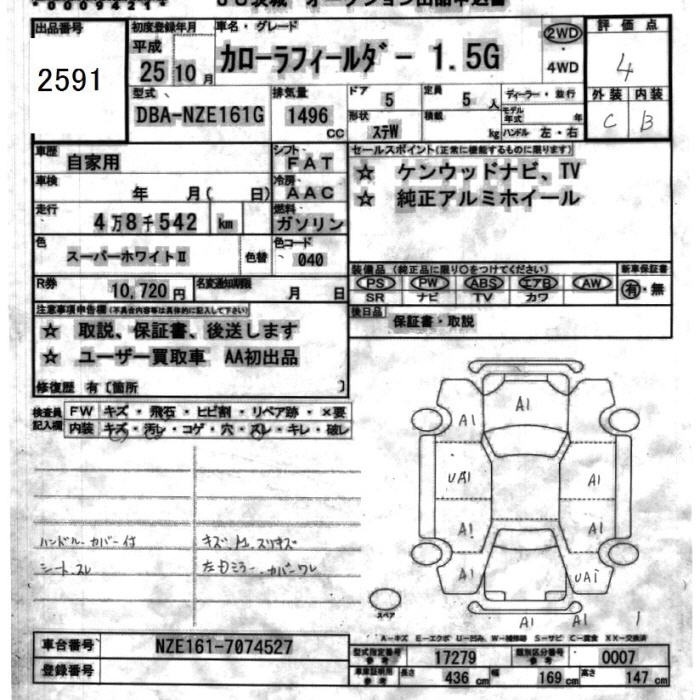 *0009421*
オークション出品申込書
出品番号
2591
初度登録年月
平成
25 10 月
車名・グレード
カローラフィールダー 1.5G
2WD
・
4WD
評価点
4
外装 内装
C B
型式
DBA-NZE161G
排気量
1496
cc
ドア
5
定員
5 人
形状
ステW
積載
kg
ディーラー・並行
モデル年式 年
ハンドル 左・右
車歴
自家用
シフト
FAT
車検
年 月( 日)
冷房
AAC
走行
4万8千542 km
燃料
ガソリン
色
スーパーホワイトⅡ
色替
色コード
040
R券
10,720 円
名変通知期限
月 日
セールスポイント(正常に機能するものに限ります)
☆ ケンウッドナビ、TV
☆ 純正アルミホイール
装備品(純正品に限り○をつけてください)
PS PW ABS エアB AW
SR ナビ TV カワ
新車保証書
有・無
後日品
保証書・取説
注意事項申告欄(不具合内容等は具体的に記入して下さい)
☆ 取説、保証書、後送します
☆ ユーザー買取車 AA初出品
修復歴 有〔箇所 〕
検査員記入欄
FW キズ・飛石・ヒビ割・リペア跡・×要
内装 キズ・汚レ・コゲ・穴・スレ・キレ・破レ
ハンドルカバー付
シートスレ
A1
A1 A1
UA1 A1
A1 A1
A1 UA1
A1 A1 1
スペア
A－キズ E－エクボ U－凹み W－補修跡 S－サビ C－腐食 XX－交換済
車台番号
NZE161-7074527
登録番号
型式指定番号
参考
17279
類別区分番号
参考
0007
車庫証明用
参考
長さ 436 cm 幅 169 cm 高さ 147 cm